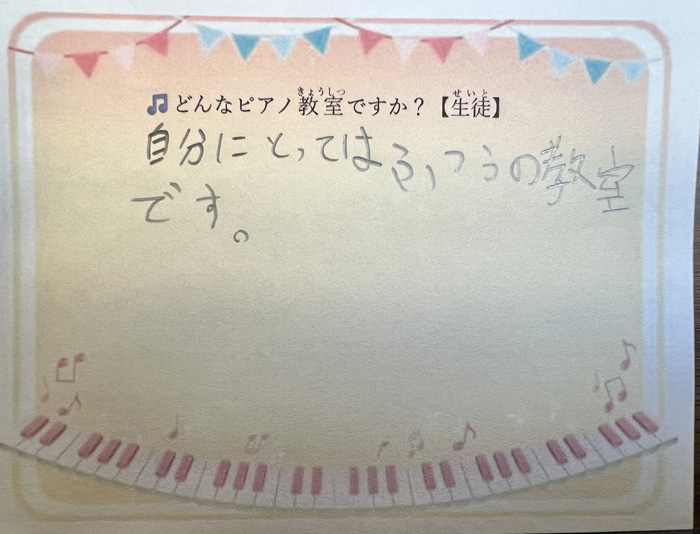 🎵どんなピアノ教室ですか？【生徒】
自分にとってはふつうの教室
です。